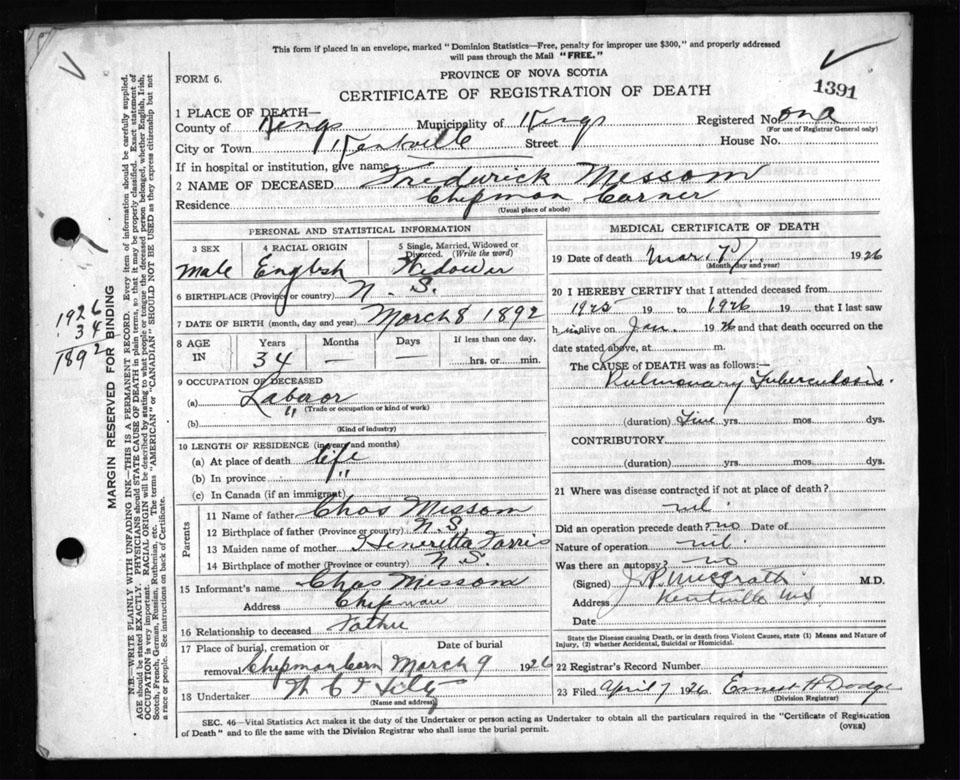 This form if placed in an envelope, marked "Dominion Statistics—Free, penalty for improper use $300," and properly addressed
will pass through the Mail "FREE."
FORM 6.
PROVINCE OF NOVA SCOTIA
CERTIFICATE OF REGISTRATION OF DEATH
1391
1 PLACE OF DEATH—
County of Kings Municipality of Kings Registered No.
(For use of Registrar General only)
City or Town Kentville Street House No.
If in hospital or institution, give name
2 NAME OF DECEASED Frederick Messom
Residence Chipman Corner
(Usual place of abode)
PERSONAL AND STATISTICAL INFORMATION
3 SEX 4 RACIAL ORIGIN 5 Single, Married, Widowed or Divorced. (Write the word)
Male English Widower
6 BIRTHPLACE (Province or country) N. S.
7 DATE OF BIRTH (month, day and year) March 8 1892
8 AGE IN Years Months Days If less than one day,
34 — — hrs. or min.
9 OCCUPATION OF DECEASED
(a) Laberor
(Trade or occupation or kind of work)
(b) "
(Kind of industry)
10 LENGTH OF RESIDENCE (in years and months)
(a) At place of death life
(b) In province "
(c) In Canada (if an immigrant)
Parents
11 Name of father Chas Messom
12 Birthplace of father (Province or country) N. S.
13 Maiden name of mother Heneretta
14 Birthplace of mother (Province or country) N S.
15 Informant's name Chas Messom
Address Chipman
16 Relationship to deceased Father
17 Place of burial, cremation or removal Date of burial
Chipman Corn March 9 1926
18 Undertaker
(Name and address)
MEDICAL CERTIFICATE OF DEATH
19 Date of death Mar. 1926
(Month, day and year)
20 I HEREBY CERTIFY that I attended deceased from
1925 19 to 1926 19 that I last saw
h im alive on Jan. 1926 and that death occurred on the
date stated above, at m.
The CAUSE of DEATH was as follows:—
Pulmonary Tuberculosis.
(duration) yrs. mos. dys.
CONTRIBUTORY
(duration) yrs. mos. dys.
21 Where was disease contracted if not at place of death?
nil.
Did an operation precede death? no Date of
Nature of operation nil.
Was there an autopsy? no
(Signed) M.D.
Address Kentville N.S.
Date
State the Disease causing Death, or in death from Violent Causes, state (1) Means and Nature of
Injury, (2) whether Accidental, Suicidal or Homicidal.
22 Registrar's Record Number
23 Filed April 7 1926 Ernest H Dodge
(Division Registrar)
SEC. 46—Vital Statistics Act makes it the duty of the Undertaker or person acting as Undertaker to obtain all the particulars required in the "Certificate of Registration
of Death" and to file the same with the Division Registrar who shall issue the burial permit.
(OVER)
1926
34
1892
MARGIN RESERVED FOR BINDING
N.B.—WRITE PLAINLY WITH UNFADING INK—THIS IS A PERMANENT RECORD. Every item of information should be carefully supplied.
AGE should be stated EXACTLY. PHYSICIANS should STATE CAUSE OF DEATH in plain terms, so that it may be properly classified. Exact statement of
OCCUPATION is very important. RACIAL ORIGIN will be described by stating to what people or tongue the deceased person belonged, whether English, Irish,
Scotch, French, German, Russian, Ruthenian, etc. The terms "AMERICAN" or "CANADIAN" SHOULD NOT BE USED as they express citizenship but not
a race or people. See instructions on back of Certificate.